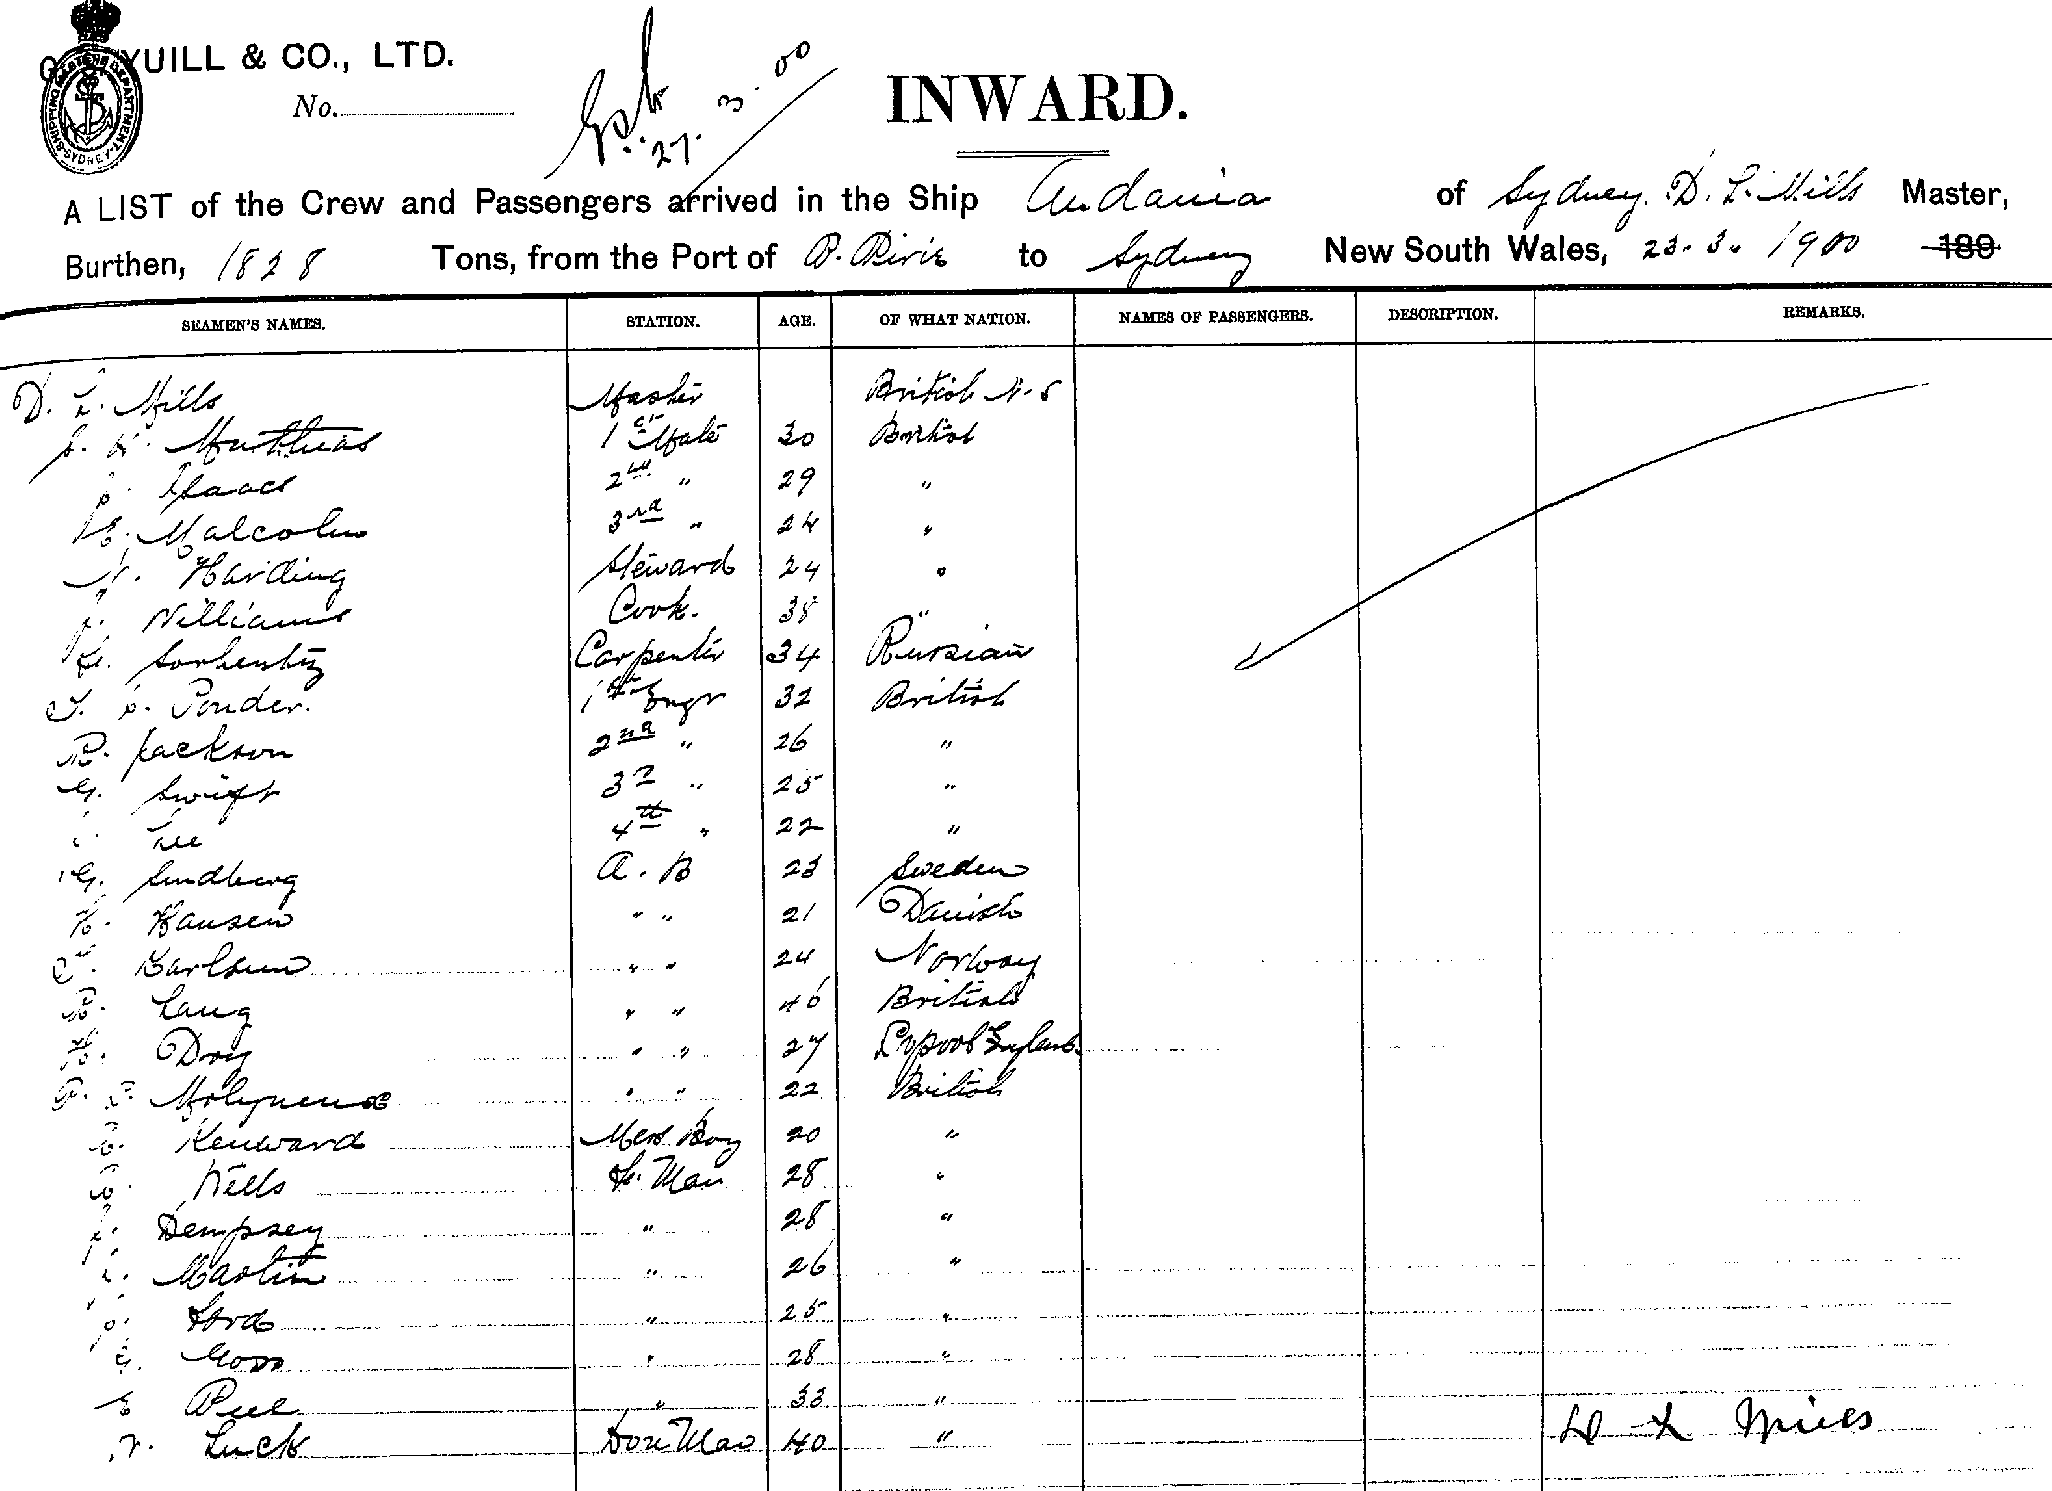 YUILL & CO., LTD.
SHIPPING MASTERS DEPARTMENT SYDNEY
No.
27. 3. 00
INWARD.
A LIST of the Crew and Passengers arrived in the Ship Andania of Sydney. D. L. Mills Master,
Burthen, 1828 Tons, from the Port of P. Pirie to Sydney New South Wales, 23. 3. 1900 189
SEAMEN'S NAMES. STATION. AGE. OF WHAT NATION. NAMES OF PASSENGERS. DESCRIPTION. REMARKS.
D. L. Mills Master British N.S
Matthias 1st Mate 30 British
Isaacs 2nd " 29 "
Malcolm 3rd " 24 "
Harding Steward 24 "
J. Williams Cook. 38 "
Carpenter 34 Russian
Ponder. 1st Engr 32 British
R. Jackson 2nd " 26 "
G. Swift 3d " 25 "
Lee 4th " 22 "
G. Lindberg A. B 23 Sweden
H. Hansen " " 21 Danish
Karlsen " " 24 Norway
Lang " " 46 British
H. " " 27 Lpool England
Molyneux " " 22 British
Kenward Mess Boy 20 "
Wells F. Man 28 "
J. Dempsey " 28 "
Martin " 26 "
Ford " 25 "
Goss " 28 "
E Peel " 33 "
Luck 40 "
D L Mills